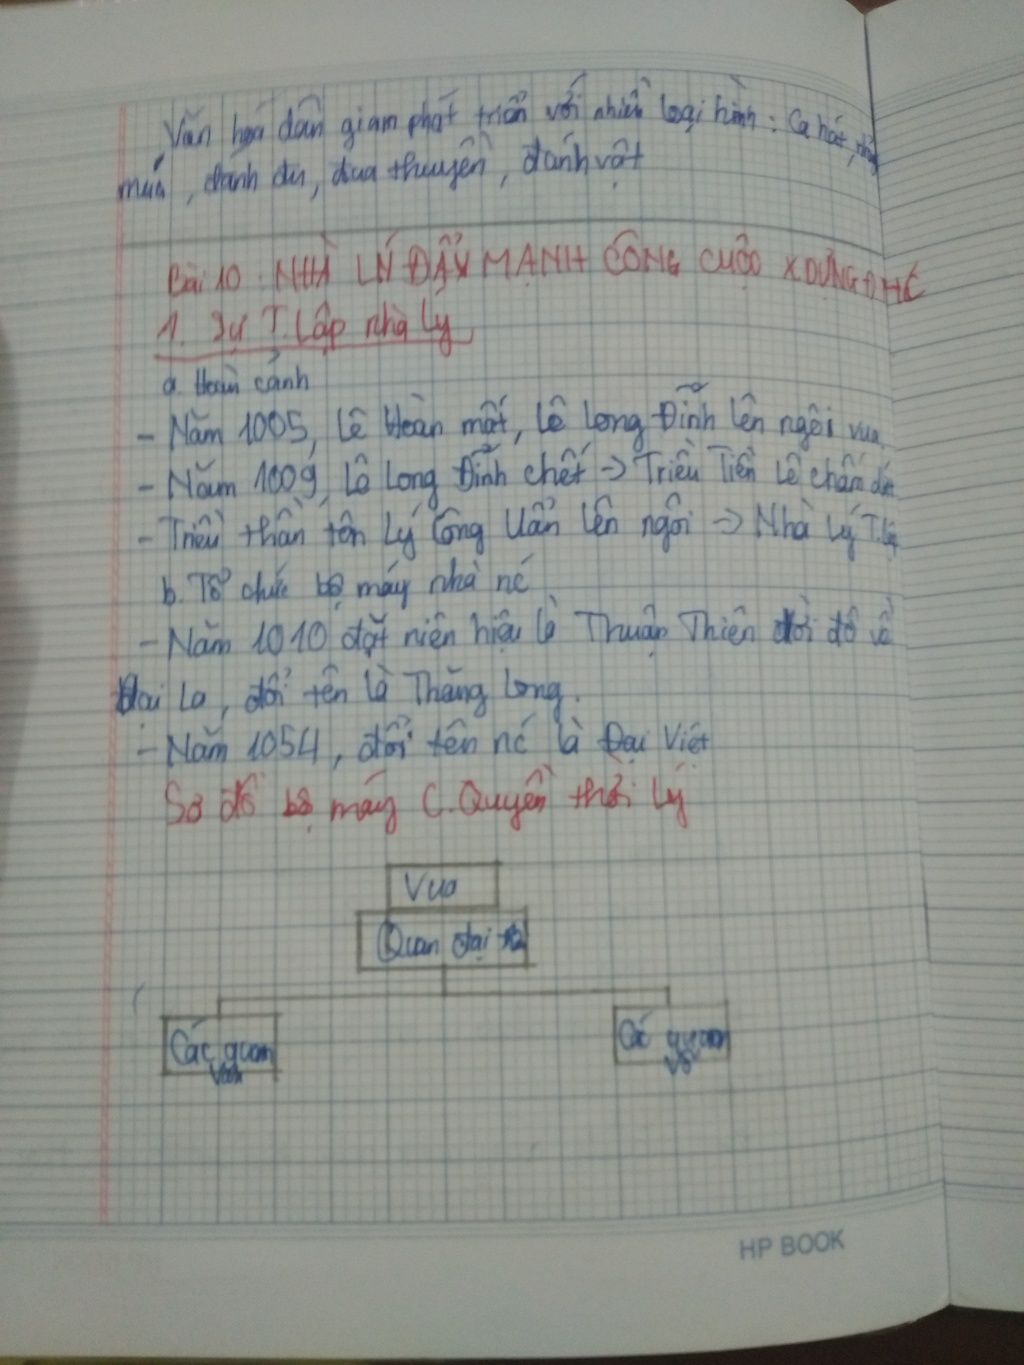 Văn hoá dân gian phát triển với nhiều loại hình: Ca hát, nhảy
múa, đánh đu, đua thuyền, đánh vật
Bài 10: NHÀ LÝ ĐẨY MẠNH CÔNG CUỘC X DỰNG ĐNC
1. Sự T.Lập nhà Lý
a. Hoàn cảnh
- Năm 1005, Lê Hoàn mất, Lê Long Đĩnh lên ngôi vua
- Năm 1009, Lê Long Đĩnh chết -> Triều Tiền Lê chấm dứt
- Triều thần tôn Lý Công Uẩn lên ngôi -> Nhà Lý T.lập
b. Tổ chức bộ máy nhà nc
- Năm 1010 đặt niên hiệu là Thuận Thiên dời đô về
Đại La, đổi tên là Thăng Long.
- Năm 1054, đổi tên nc là Đại Việt
Sơ đồ bộ máy C.Quyền thời Lý
Vua
Quan đại
Các quan
văn
Các quan
võ
HP BOOK